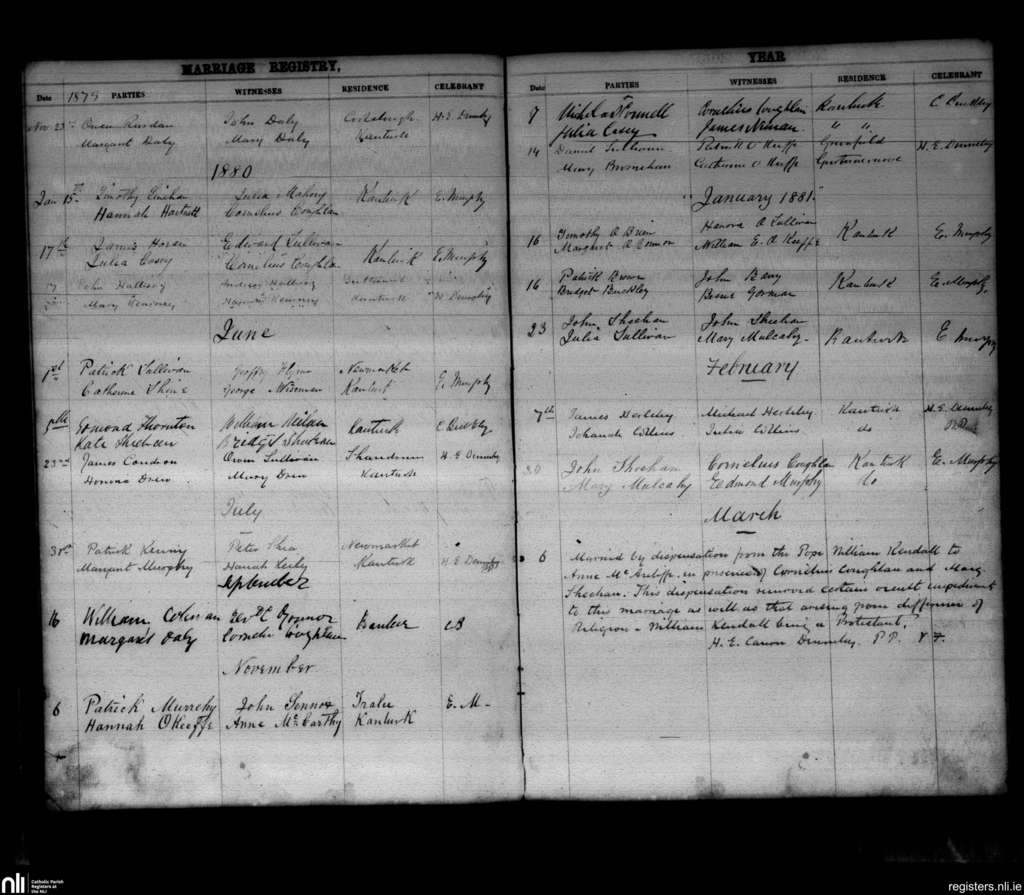 MARRIAGE REGISTRY,
Date 1879 PARTIES WITNESSES RESIDENCE CELEBRANT
Nov 23rd Owen Riordan John Daly H. E. Dennehy
Margaret Daly Mary Daly Kanturk
1880
Jan 15th Timothy Linehan Julia Mahony Kanturk E. Murphy
Hannah Hartnett Cornelius Coughlan
17th James Horan Edward Sullivan Kanturk E Murphy
Julia Casey Cornelius Coughlan
John
Mary Kanturk
June
1st Patrick Sullivan Geoffry Flynn Newmarket E. Murphy
Catherine Shine George Wiseman Kanturk
Edmond Thornton William Kanturk C Buckley
Kate Sheehan Bridgt Sheehan
23rd James Condon Owen Sullivan H. E Dennehy
Honora Drew Mary Drew Kanturk
July
31st Patrick Kenny Peter Shea Newmarket
Margaret Murphy Hanah Kanturk H. E Dennehy
September
16 William Connor
Margaret Daly Cornelius Coughlan CB
November
6 Patrick Murrehy John Tralee E. M-
Hannah OKeeffe Anne McCarthy Kanturk
YEAR
Date PARTIES WITNESSES RESIDENCE CELEBRANT
7 Michl O'Connell Cornelius Coughlan Kanturk C Buckley
Julia Casey James Noonan " "
14 Daniel Sullivan Patrick O'Keeffe Greenfield H. E. Dennehy
Mary Brosnahan Catherine O Keeffe
"January 1881."
16 Timothy O Brien Hanora O Sullivan Kanturk E. Murphy
Margaret O Connor William E. O Keeffe
16 Patrick Brown John Barry Kanturk E. Murphy
Bridget Buckley Bessie Gorman
23 John Sheehan John Sheehan
Julia Sullivan Mary Mulcahy- Kanturk E Murphy
February
7th James Michael Kanturk H. E. Dennehy
Johanah Collins Julia Collins do P.P.
20 John Sheehan Cornelius Coughlan Kanturk E. Murphy
Mary Mulcahy Edmond Murphy Do
March
6 Married by dispensation from the Pope William Kendall to
Anne McAuliffe in presence of Cornelius Coughlan and Mary
Sheehan. This dispensation removed certain occult impediment
to this marriage as well as that arising from difference of
Religion - William Kendall being a Protestant.
H. E. Canon Dennehy P.P. V.F.
nli
Catholic Parish
Registers at
the NLI
registers.nli.ie